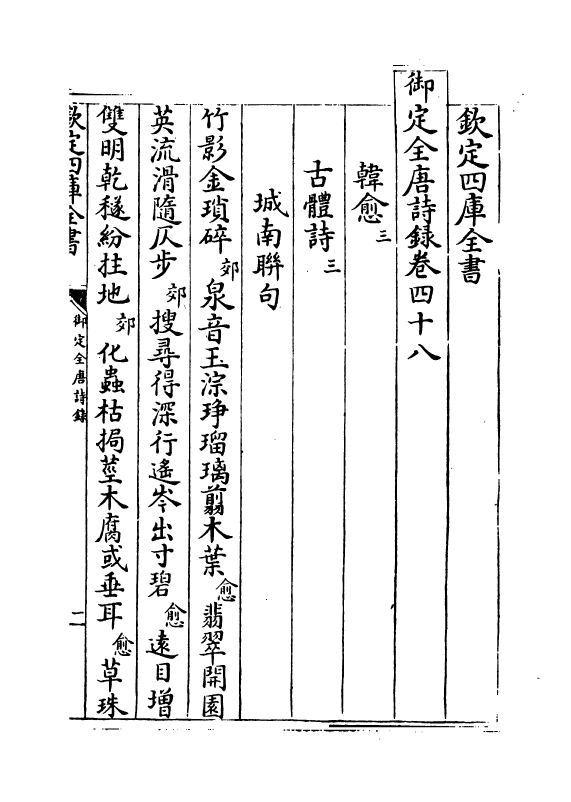 欽定四庫全書
御定全唐詩録卷四十八
韓愈三
古體詩三
城南聯句
竹影金瑣碎郊泉音玉淙琤瑠璃翦木葉愈翡翠開園
英流滑隨仄步郊搜尋得深行遙岑出寸碧愈遠目增
雙明乾穟紛拄地郊化蟲枯挶莖木腐或垂耳愈草珠
欽定四庫全書
御定全唐詩錄